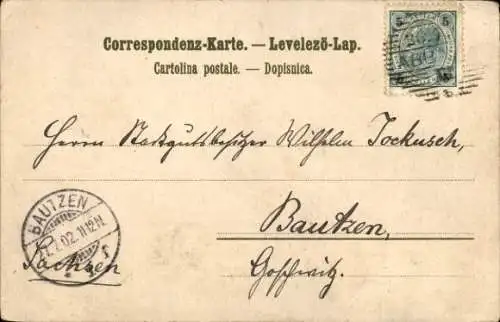 Correspondenz-Karte. — Levelező-Lap.
Cartolina postale. — Dopisnica.
5 5
Herrn Stadtgutsbesitzer Wilhelm Jockusch,
Bautzen,
Goschwitz.
Sachsen
BAUTZEN
7.02.11-12N.